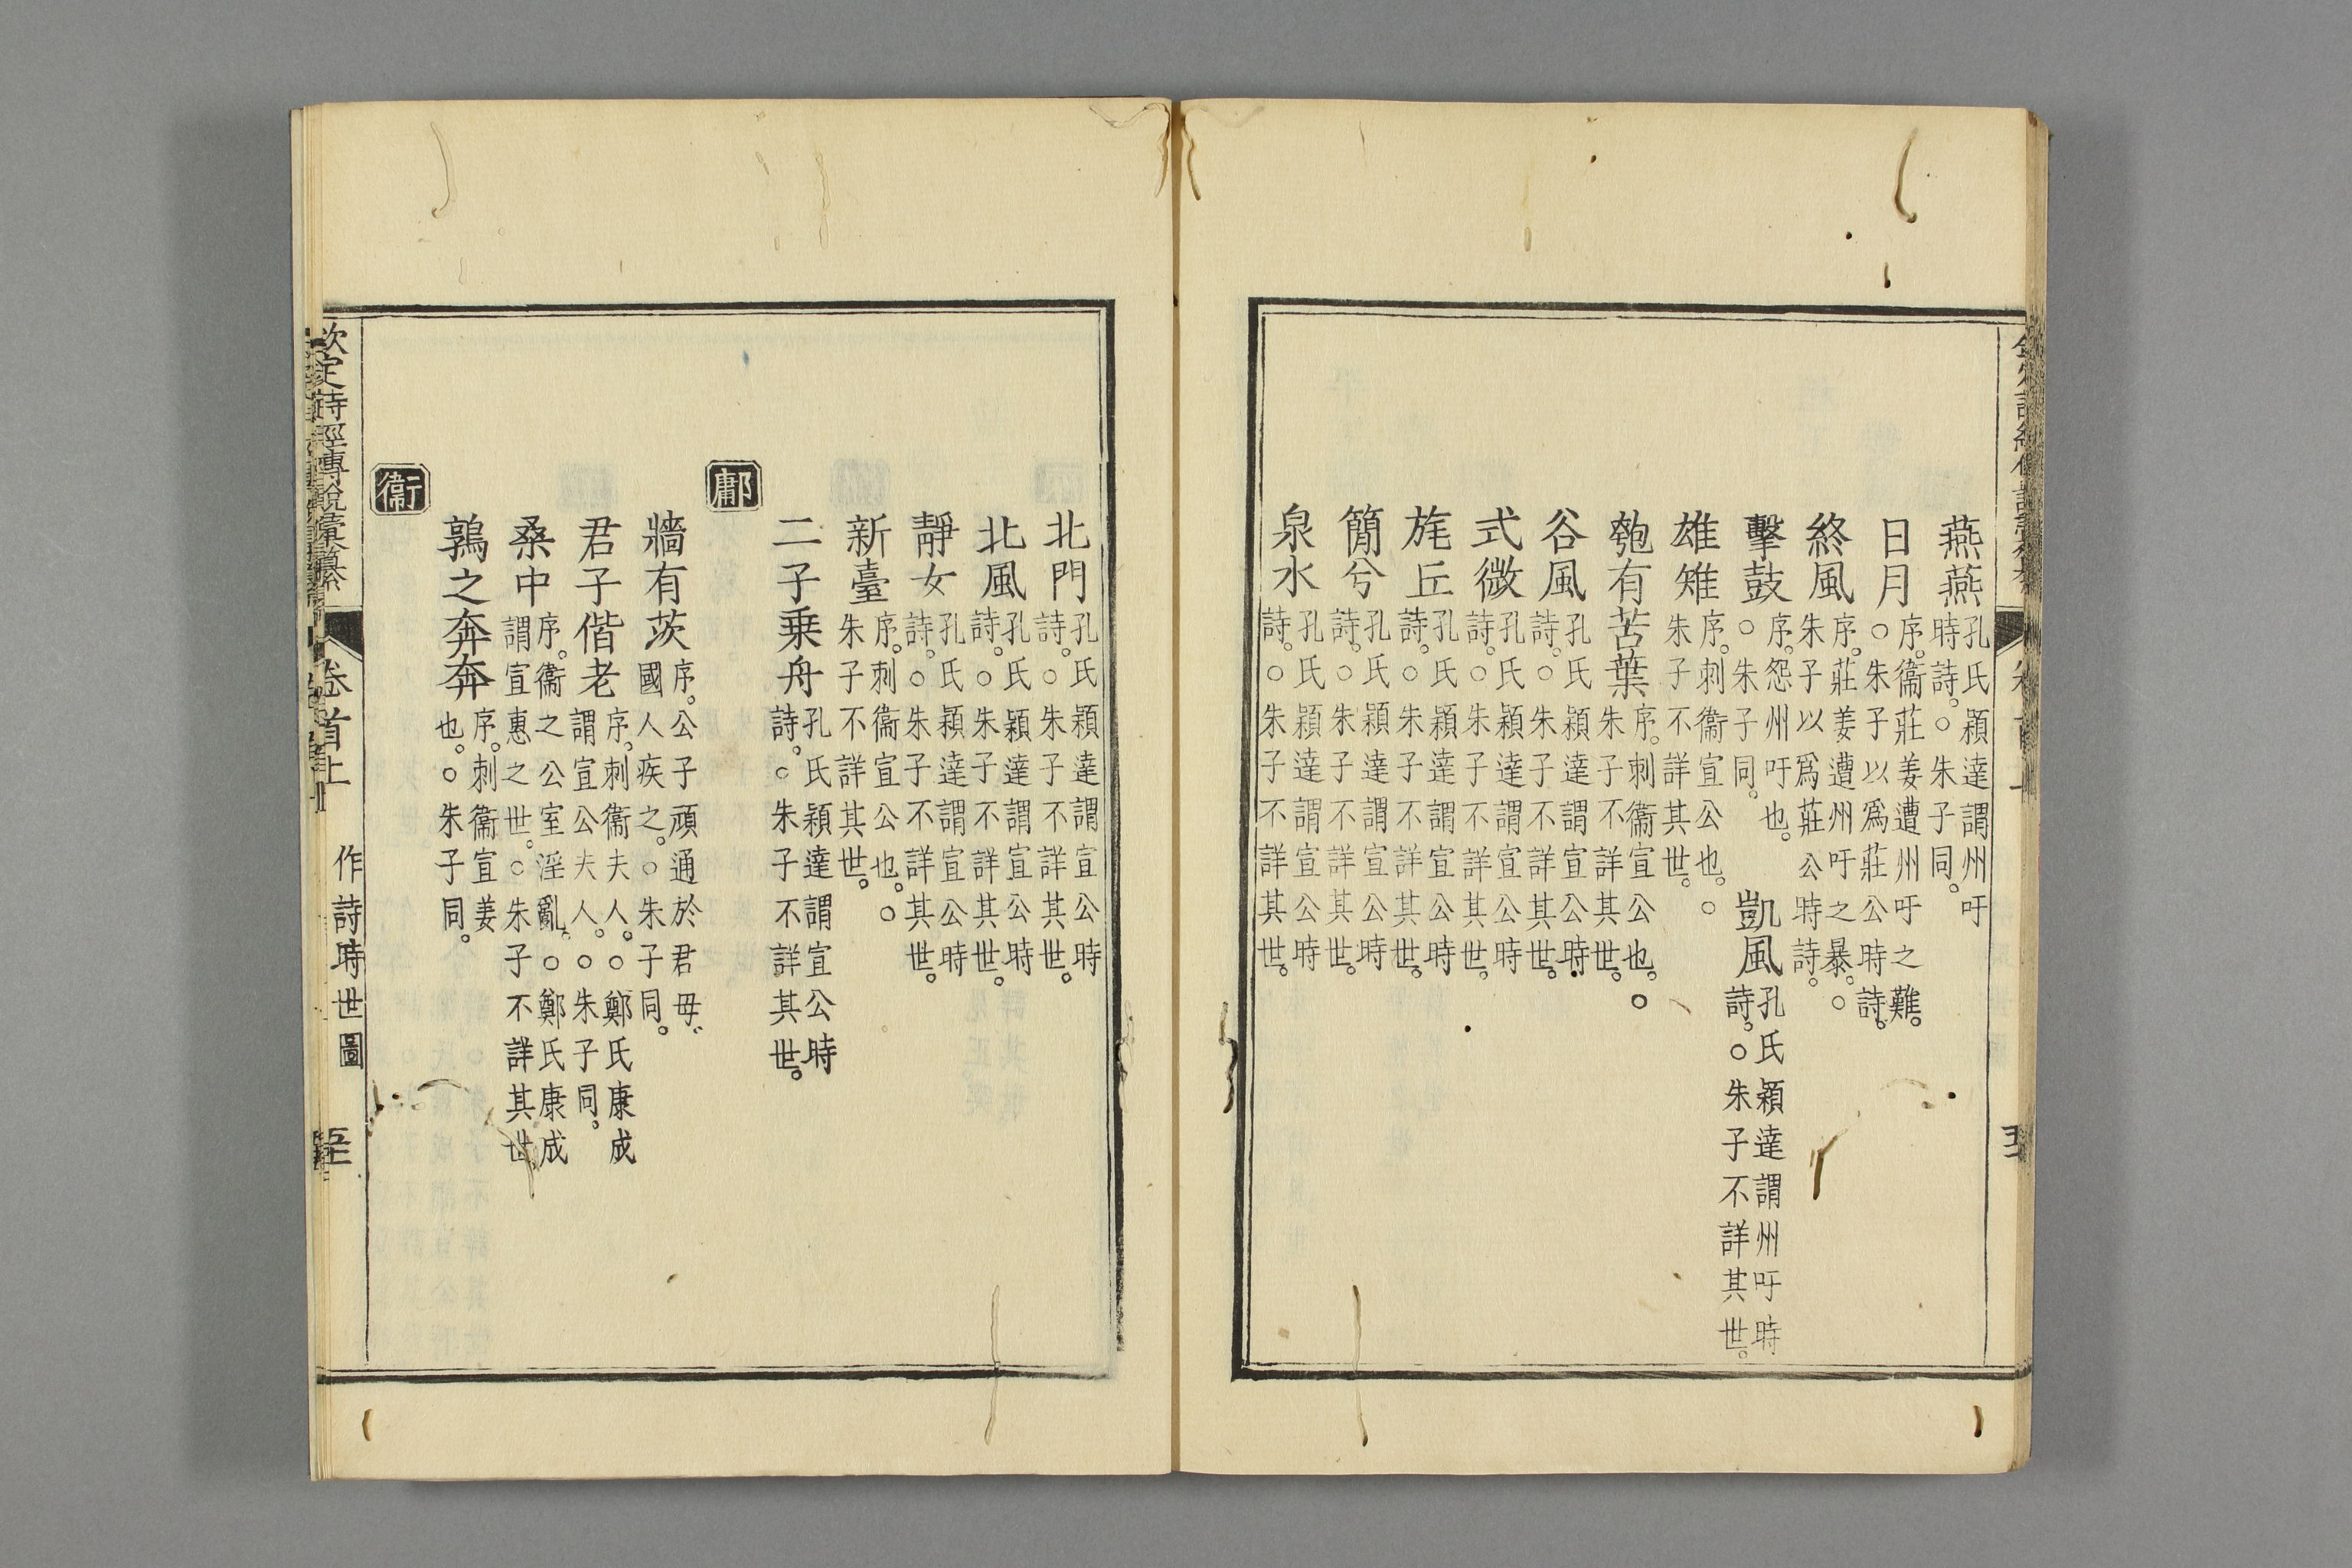 燕燕孔氏穎達謂州吁時詩。○朱子同。
日月序。衞莊姜遭州吁之難。○朱子以爲莊公時詩。
終風序。莊姜遭州吁之暴。○朱子以爲莊公時詩。
擊鼓序。怨州吁也。○朱子同。 凱風孔氏穎達謂州吁時詩。○朱子不詳其世。
雄雉序。刺衞宣公也。○朱子不詳其世。
匏有苦葉序。刺衞宣公也。○朱子不詳其世。
谷風孔氏穎達謂宣公時詩。○朱子不詳其世。
式微孔氏穎達謂宣公時詩。○朱子不詳其世。
旄丘孔氏穎達謂宣公時詩。○朱子不詳其世。
簡兮孔氏穎達謂宣公時詩。○朱子不詳其世。
泉水孔氏穎達謂宣公時詩。○朱子不詳其世。
北門孔氏穎達謂宣公時詩。○朱子不詳其世。
北風孔氏穎達謂宣公時詩。○朱子不詳其世。
靜女孔氏穎達謂宣公時詩。○朱子不詳其世。
新臺序。刺衞宣公也。○朱子不詳其世。
二子乗舟孔氏穎達謂宣公時詩。○朱子不詳其世。
鄘
牆有茨序。公子頑通於君母、國人疾之。○朱子同。
君子偕老序。刺衞夫人。○鄭氏康成謂宣公夫人。○朱子同。
桑中序。衞之公室淫亂。○鄭氏康成謂宣惠之世。○朱子不詳其世。
鶉之奔奔序。刺衞宣姜也。○朱子同。
衞
欽定詩經傳說彙纂 卷首上 作詩時世圖